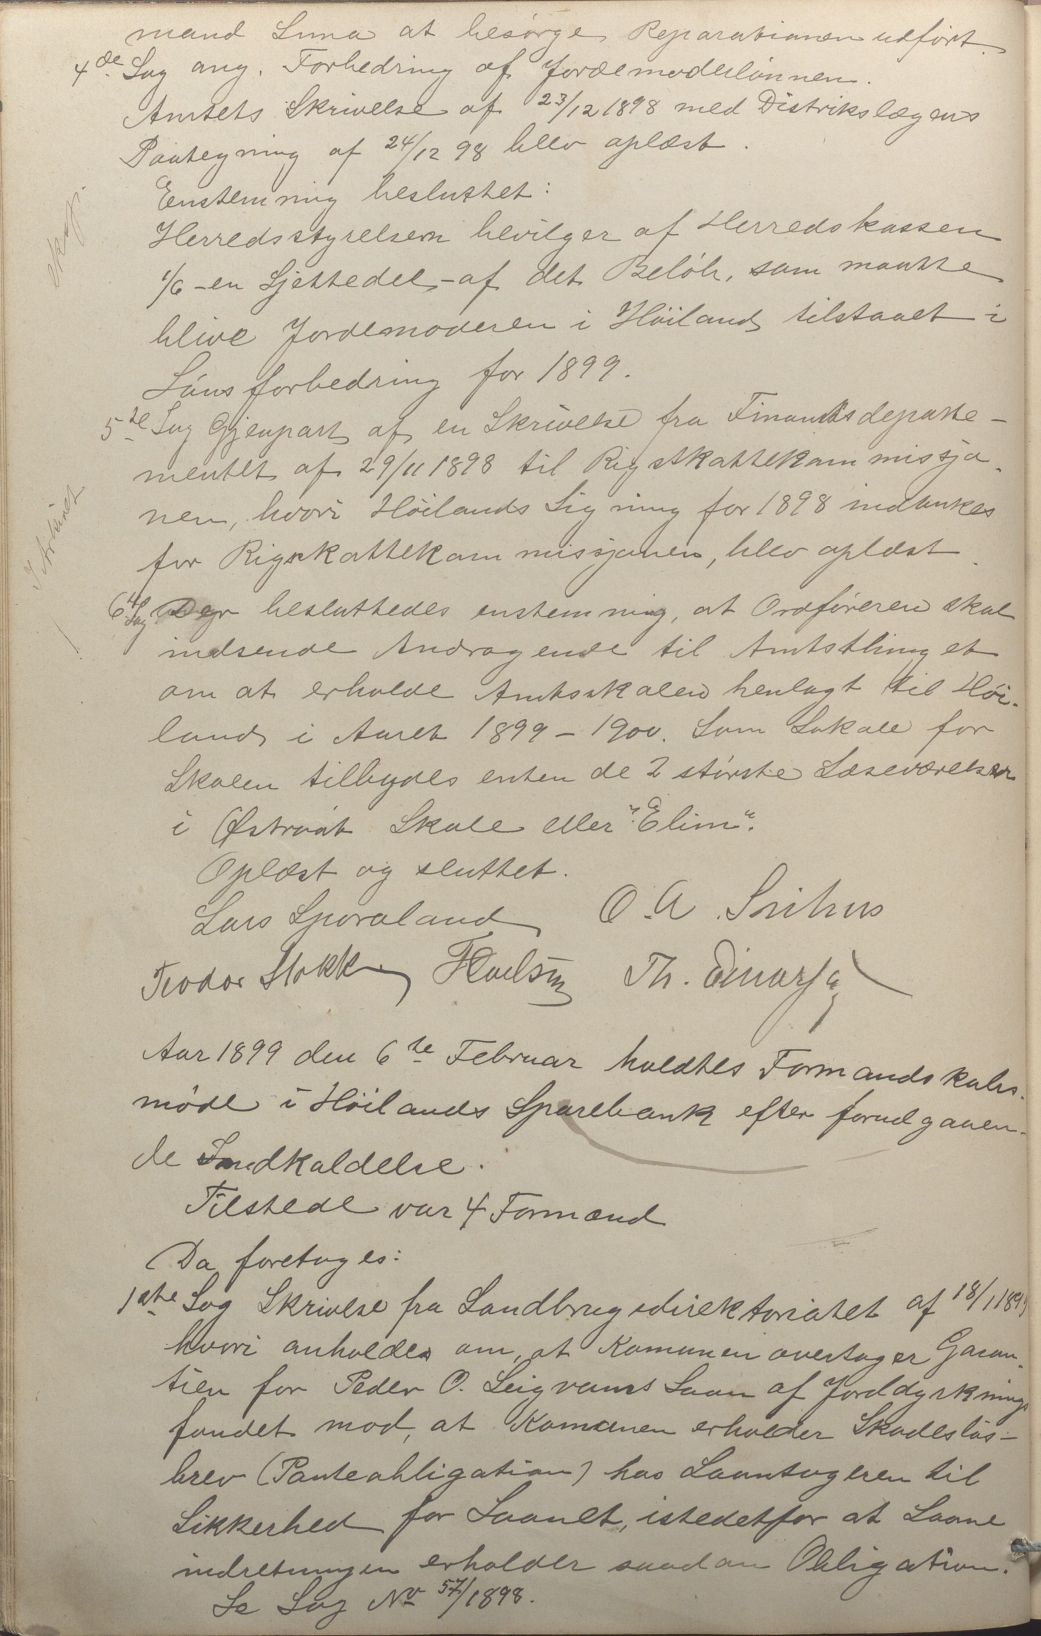 mand Luna at besørge Reparationen udført.
4de Sag ang. Forbedring af Jordemoderlønnen.
Amtets Skrivelse af 23/12 1898 med Distrikslægens
Paategning af 24/12 98 blev oplæst.
Enstemmig besluttet:
Herredsstyrelsen bevilger af Herredskassen
1/6 - en Sjettedel - af det Beløb, som maatte
blive Jordemoderen i Høiland tilstaaet i
Lønsforbedring for 1899.
5te Sag Gjenpart af en Skrivelse fra Finantsdeparte-
mentet af 29/11 1898 til Rigsskattekommissjo-
nen, hvori Høilands Ligning for 1898 indankes
for Rigsskattekommissjonen, blev oplæst.
6te Sag Der besluttedes enstemmig, at Ordføreren skal
indsende Andragende til Amtsthinget
om at erholde Amtsskolen henlagt til Høi-
land i Aaret 1899-1900. Som Lokale for
Skolen tilbydes enten de 2 største Læseværelser
i Østraat Skole eller "Elim".
Oplæst og sluttet.
Lars Sporaland O. A.
Teodor Stokke Th. Einarsen
Aar 1899 den 6te Februar holdtes Formandskabs-
møde i Høilands Sparebank efter forudgaaen-
de Indkaldelse.
Tilstede var 4 Formænd
Da foretoges:
1ste Sag Skrivelse fra Landbrugsdirektoriatet af 18/1 1899
hvori anholdes om, at Komunen overtager Garan-
tien for Peder O. Leigvams Laan af Jorddyrknings
fondet mod, at Komunen erholder Skadesløs-
brev (Panteobligation) hos Laantageren til
Sikkerhed for Laanet, istedetfor at Laane
indretningen erholder saadan Obligation.
Se Sag No 57/1898.